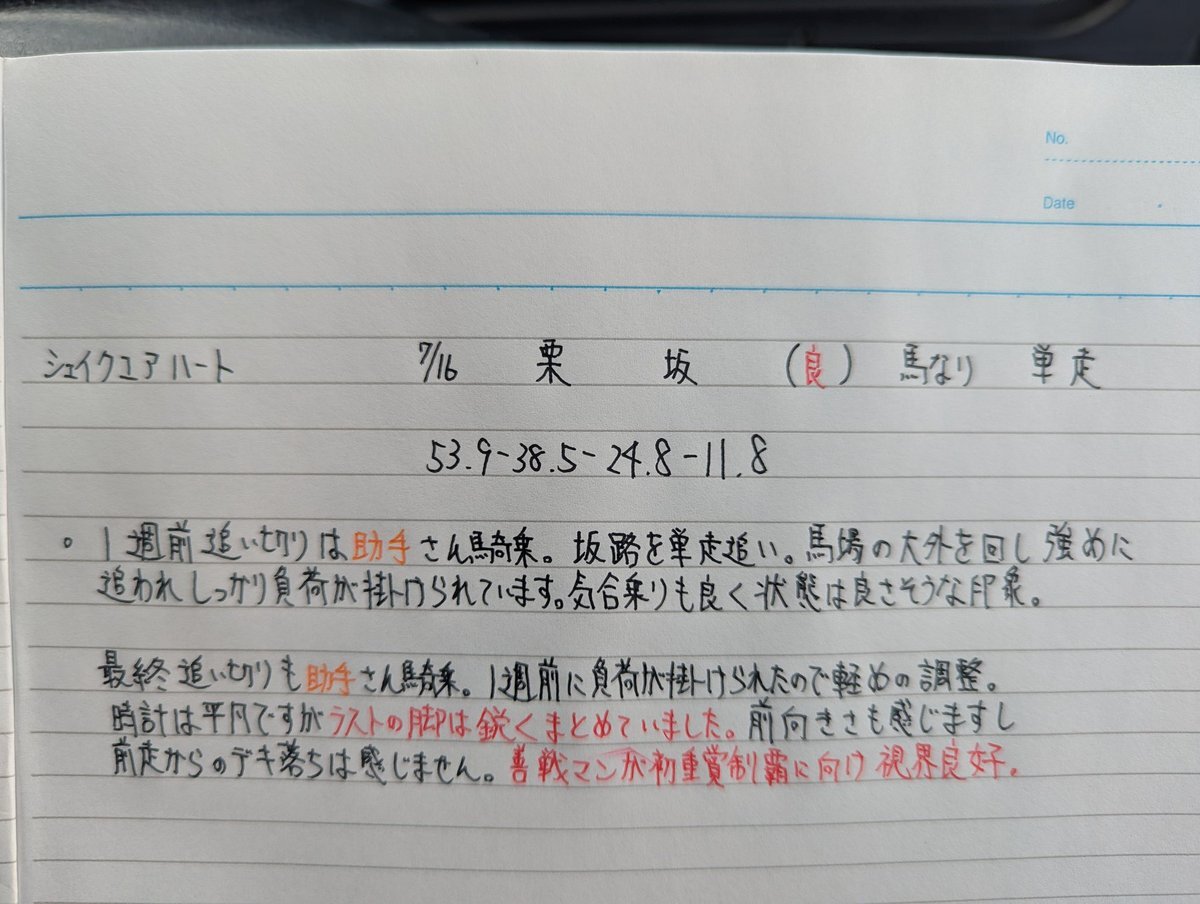 No.
Date
シェイクユアハート 7/16 栗 坂 (良) 馬なり 単走
53.9-38.5-24.8-11.8
。1週前追い切りは助手さん騎乗。坂路を単走追い。馬場の大外を回し強めに
追われしっかり負荷が掛けられています。気合乗りも良く状態は良さそうな印象。
最終追い切りも助手さん騎乗。1週前に負荷が掛けられたので軽めの調整。
時計は平凡ですがラストの脚は鋭くまとめていました。前向きさも感じますし
前走からのデキ落ちは感じません。善戦マンが初重賞制覇に向け視界良好。